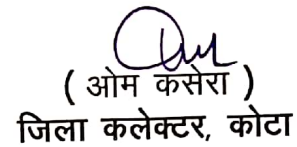 ( ओम कसेरा )
जिला कलेक्टर, कोटा